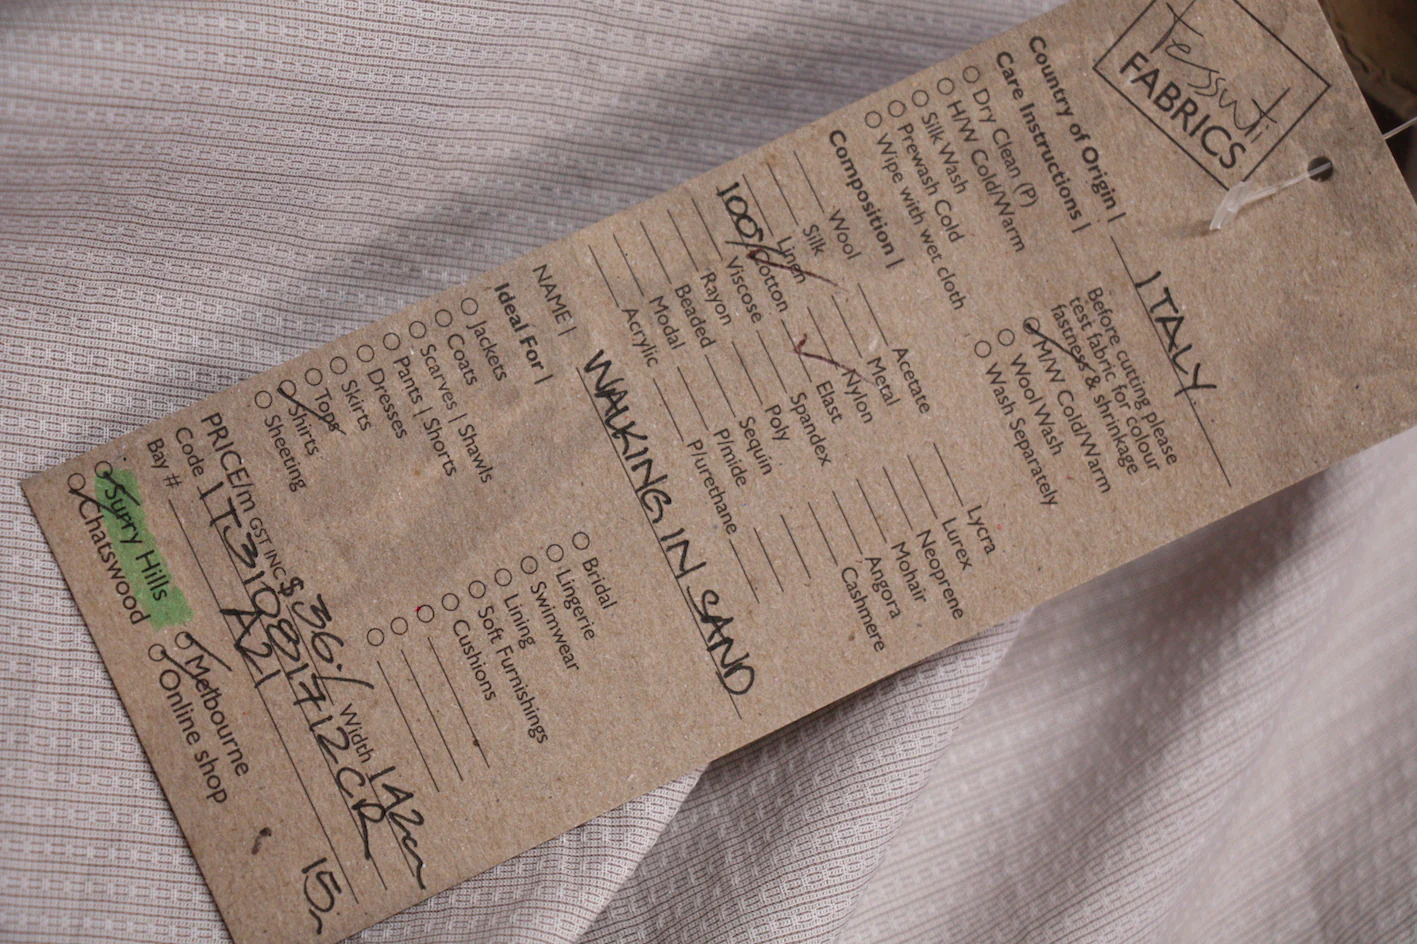 Tessuti
FABRICS
Country of Origin | ITALY
Care Instructions |
Before cutting please
test fabric for colour
fastness & shrinkage
Dry Clean (P)
H/W Cold/Warm
Silk Wash
Prewash Cold
Wipe with wet cloth
M/W Cold/Warm
Wool Wash
Wash Separately
Composition |
Wool
Silk
Linen
100% Cotton
Viscose
Rayon
Beaded
Modal
Acrylic
Acetate
Metal
Nylon
Elast
Spandex
Poly
Sequin
P/mide
P/urethane
Lycra
Lurex
Neoprene
Mohair
Angora
Cashmere
NAME | WALKING IN SAND
Ideal For |
Jackets
Coats
Scarves | Shawls
Pants | Shorts
Dresses
Skirts
Tops
Shirts
Sheeting
Bridal
Lingerie
Swimwear
Lining
Soft Furnishings
Cushions
PRICE/m GST INC $36 Width 142cm
Code
Bay # A21
Surry Hills
Chatswood
Melbourne
Online shop
15